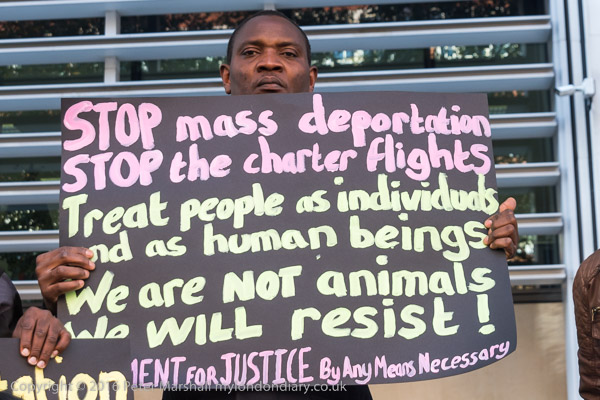 STOP mass deportation
STOP the charter flights
Treat people as individuals
nd as human beings
We are NOT animals
We WILL resist!
MENT FOR JUSTICE By Any Means Necessary
ation
Copyright © 2016 Peter Marshall mylondondiary.co.uk